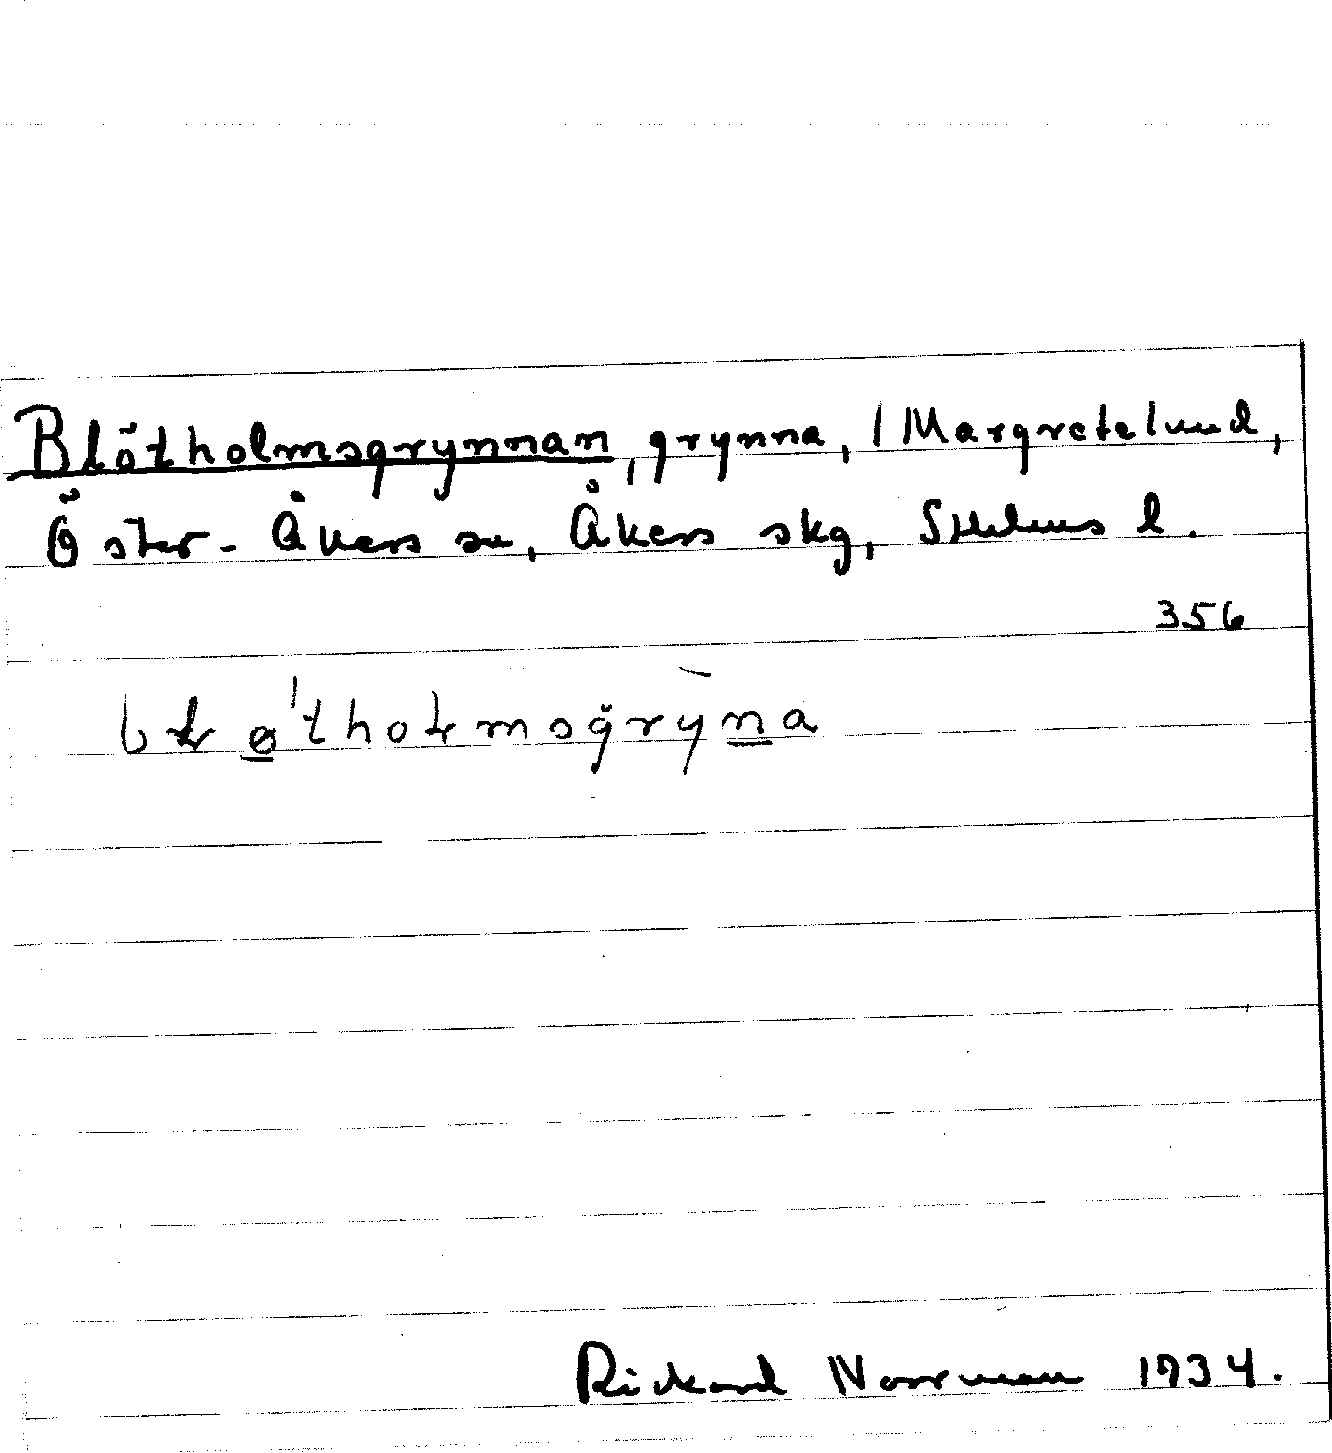 Blötholmsgrynnan, grynna, / Margretelund,
Öster-Åkers sn, Åkers skg, Sthlms l.
356
błø'thołmsgrỳna
Rickard Norrman 1934.